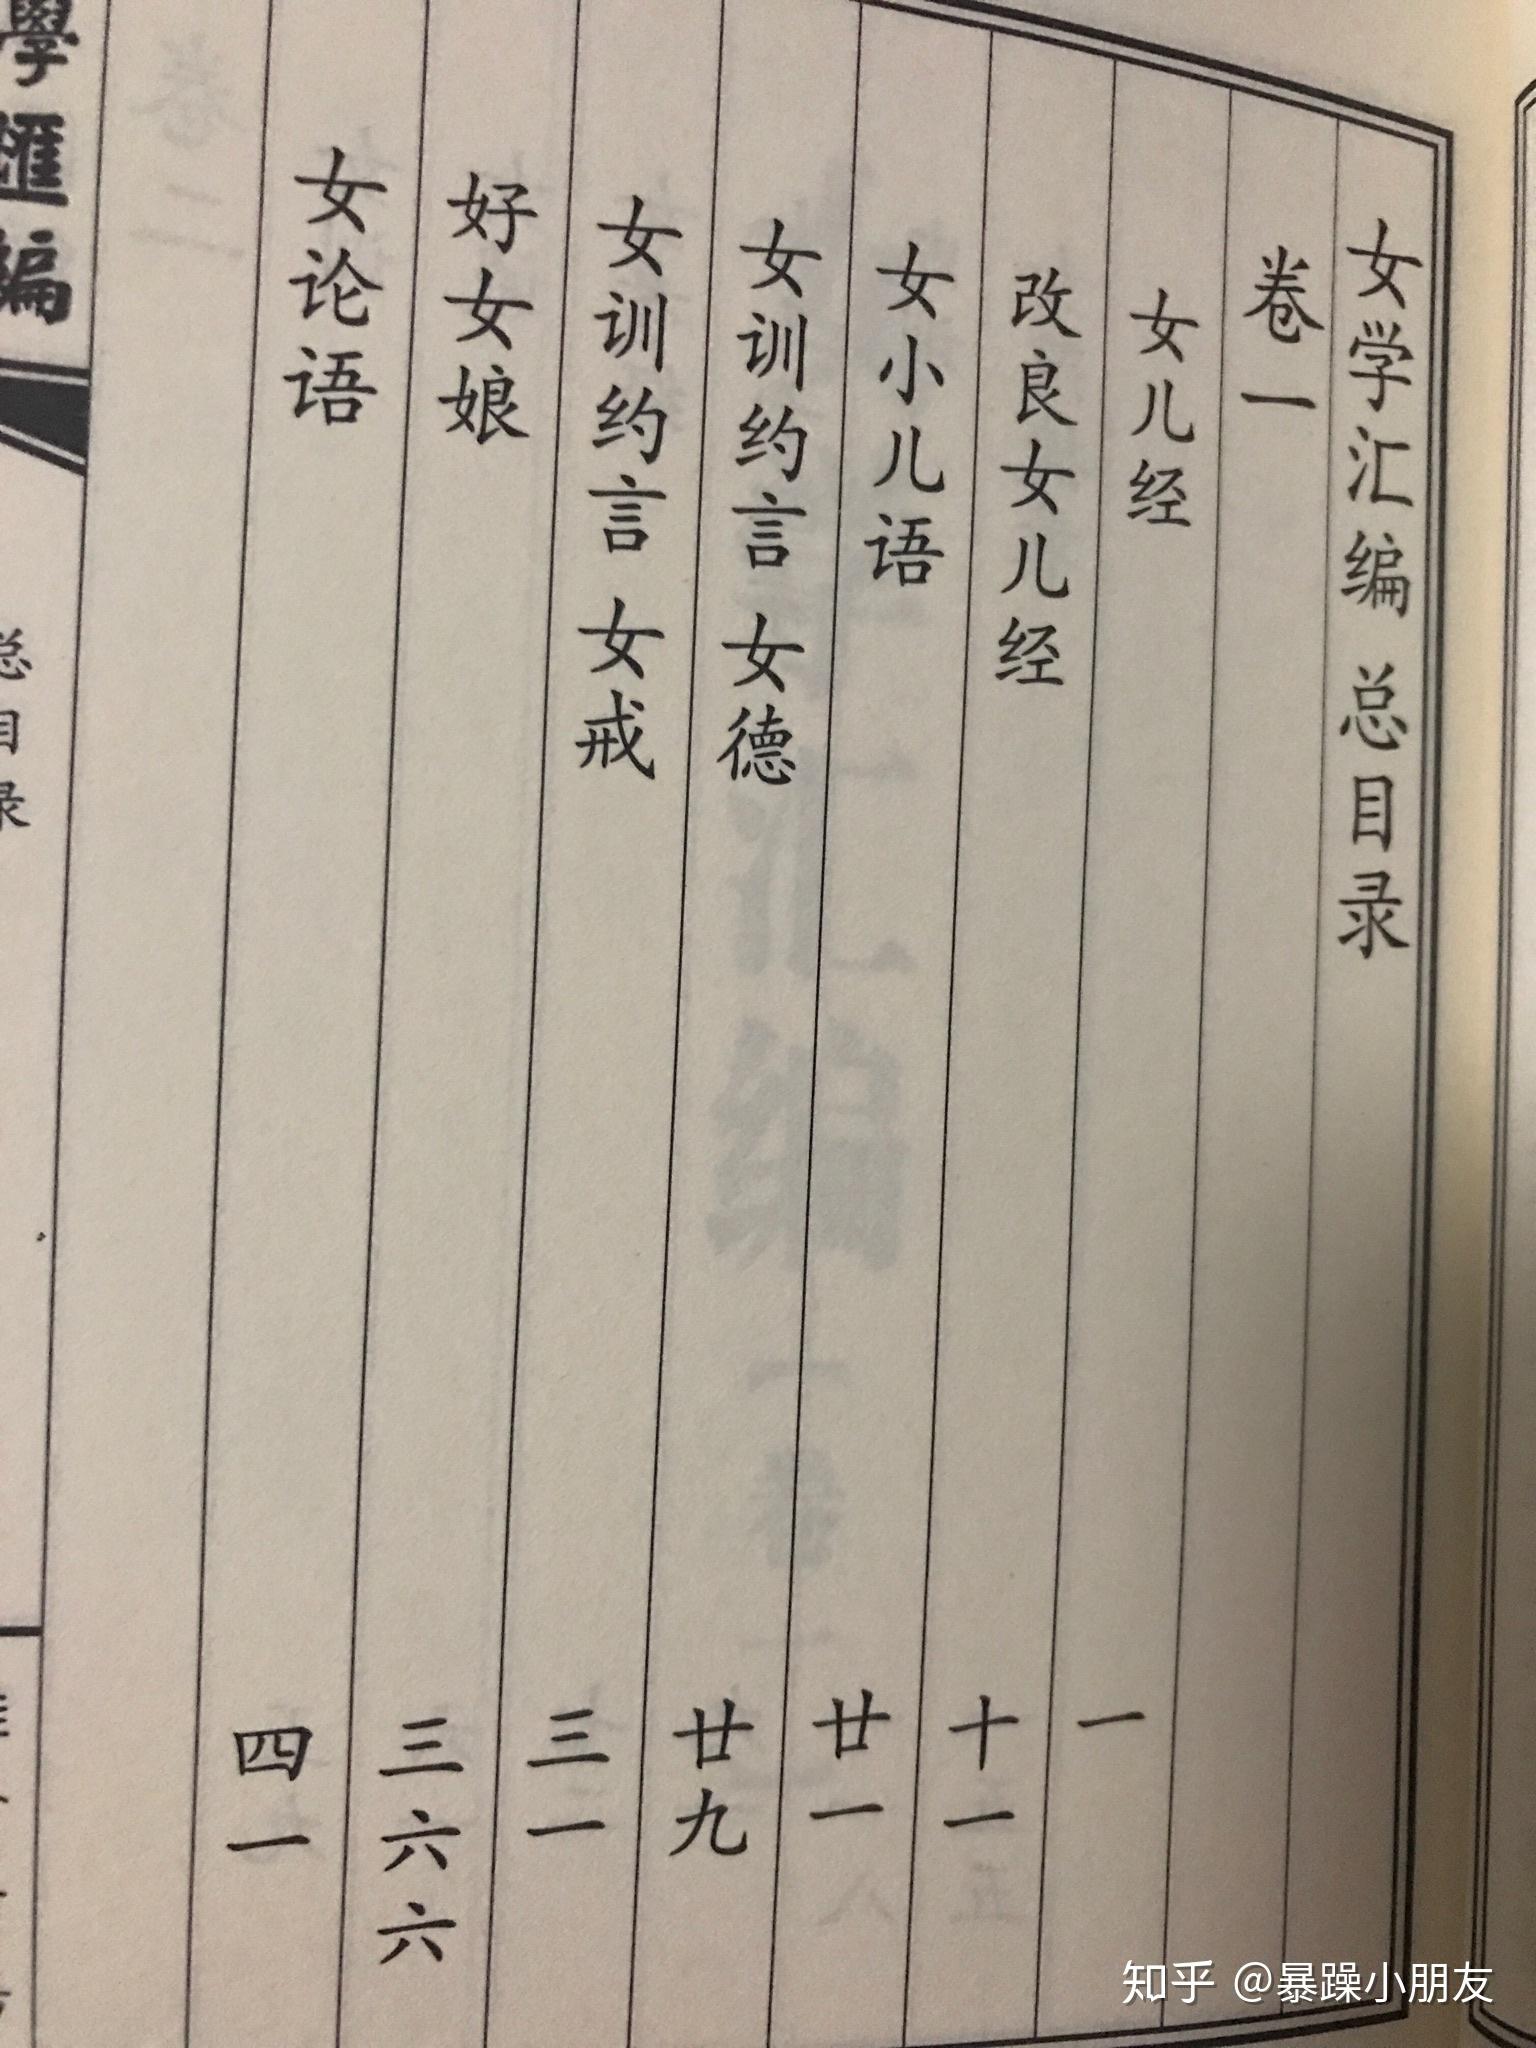 女学汇编 总目录
卷一
女儿经 一
改良女儿经 十一
女小儿语 廿一
女训约言 女德 廿九
女训约言 女戒 三一
好女娘 三六六
女论语 四一
學匯編
总目录
知乎 @暴躁小朋友